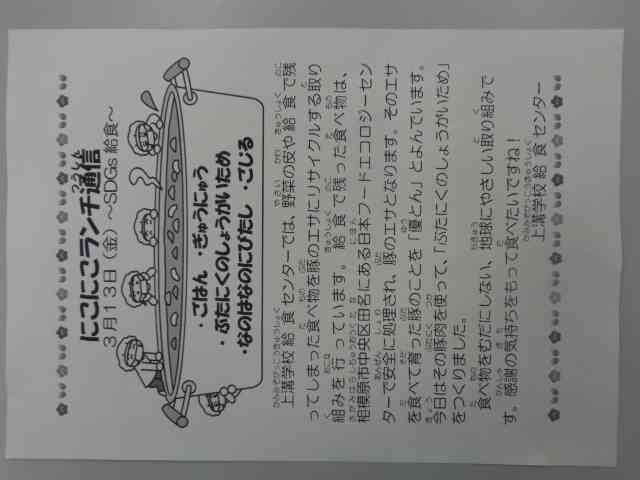 にこにこランチ通信
３月１３日（金）～SDGs 給食～
・ごはん ・ぎゅうにゅう
・ぶたにくのしょうがいため
・なのはなのにびたし ・こじる
上溝学校給食センターでは、野菜の皮や給食で残
ってしまった食べ物を豚のエサにリサイクルする取り
組みを行っています。給食で残った食べ物は、
相模原市中央区田名にある日本フードエコロジーセン
ターで安全に処理され、豚のエサとなります。そのエサ
を食べて育った豚のことを「優とん」とよんでいます。
今日はその豚肉を使って、「ぶたにくのしょうがいため」
をつくりました。
食べ物をむだにしない、地球にやさしい取り組みで
す。感謝の気持ちをもって食べたいですね！
上溝学校給食センター